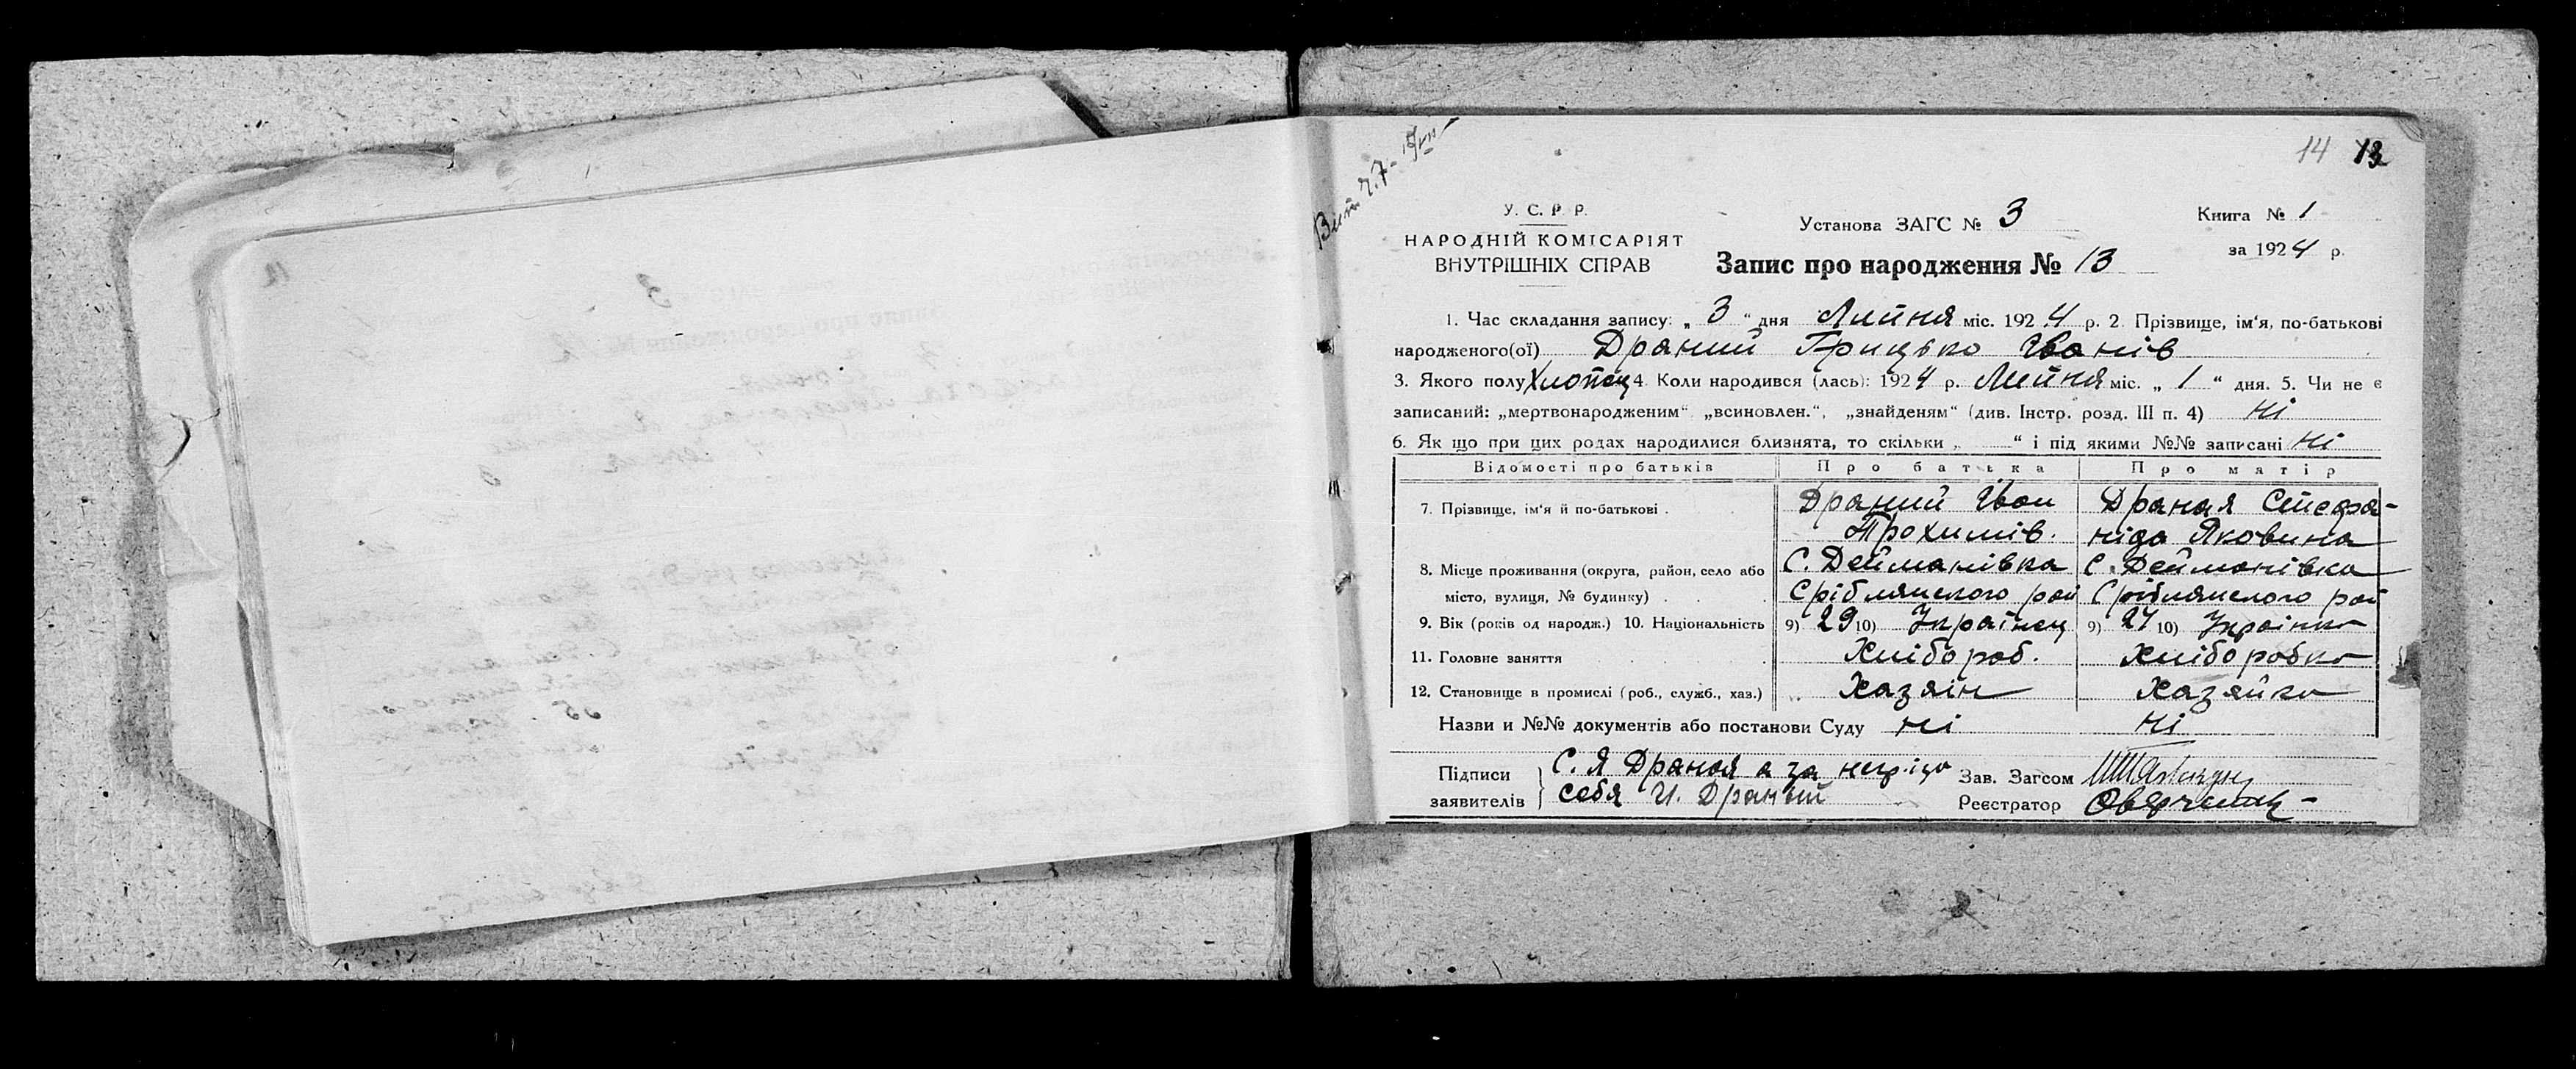 14 13
У. С. Р. Р.
НАРОДНІЙ КОМІСАРІЯТ
ВНУТРІШНІХ СПРАВ
Установа ЗАГС № 3
Запис про народження № 13
Книга № 1
за 1924 р.
1. Час складання запису: „ 3 “ дня Липня міс. 1924 р. 2. Прізвище, ім‘я, по-батькові
народженого(ої) Драний Грицько Іванів
3. Якого полу Хлопец 4. Коли народився (лась): 1924 р. Липня міс. „ 1 “ дня. 5. Чи не є
записаний: „мертвонародженим“ „всиновлен.“, „знайденям“ (див. Інстр. розд. III п. 4) Ні
6. Як що при цих родах народилися близнята, то скільки „ “ і під якими №№ записані Ні
Відомості про батьків Про батька Про матір
7. Прізвище, ім‘я й по-батькові . Драний Іван Драная Стефа-
Трохимів. ніда Яковина
8. Місце проживання (округа, район, село або С. Дейманівка С. Дейманівка
місто, вулиця, № будинку) . Срiблянского рай Срiблянского рай
9. Вік (років од народж.) 10. Національність 9) 29 10) Украінец 9) 27 10) Украінка
11. Головне заняття Хлібороб. Хліборобка
12. Становище в промислі (роб., служб., хаз.) Хазяін Хазяйка
Назви и №№ документів або постанови Суду Ні Ні
Підписи С. Я Драная а за
заявителів себя И. Драный
Зав. Загсом
Реєстратор